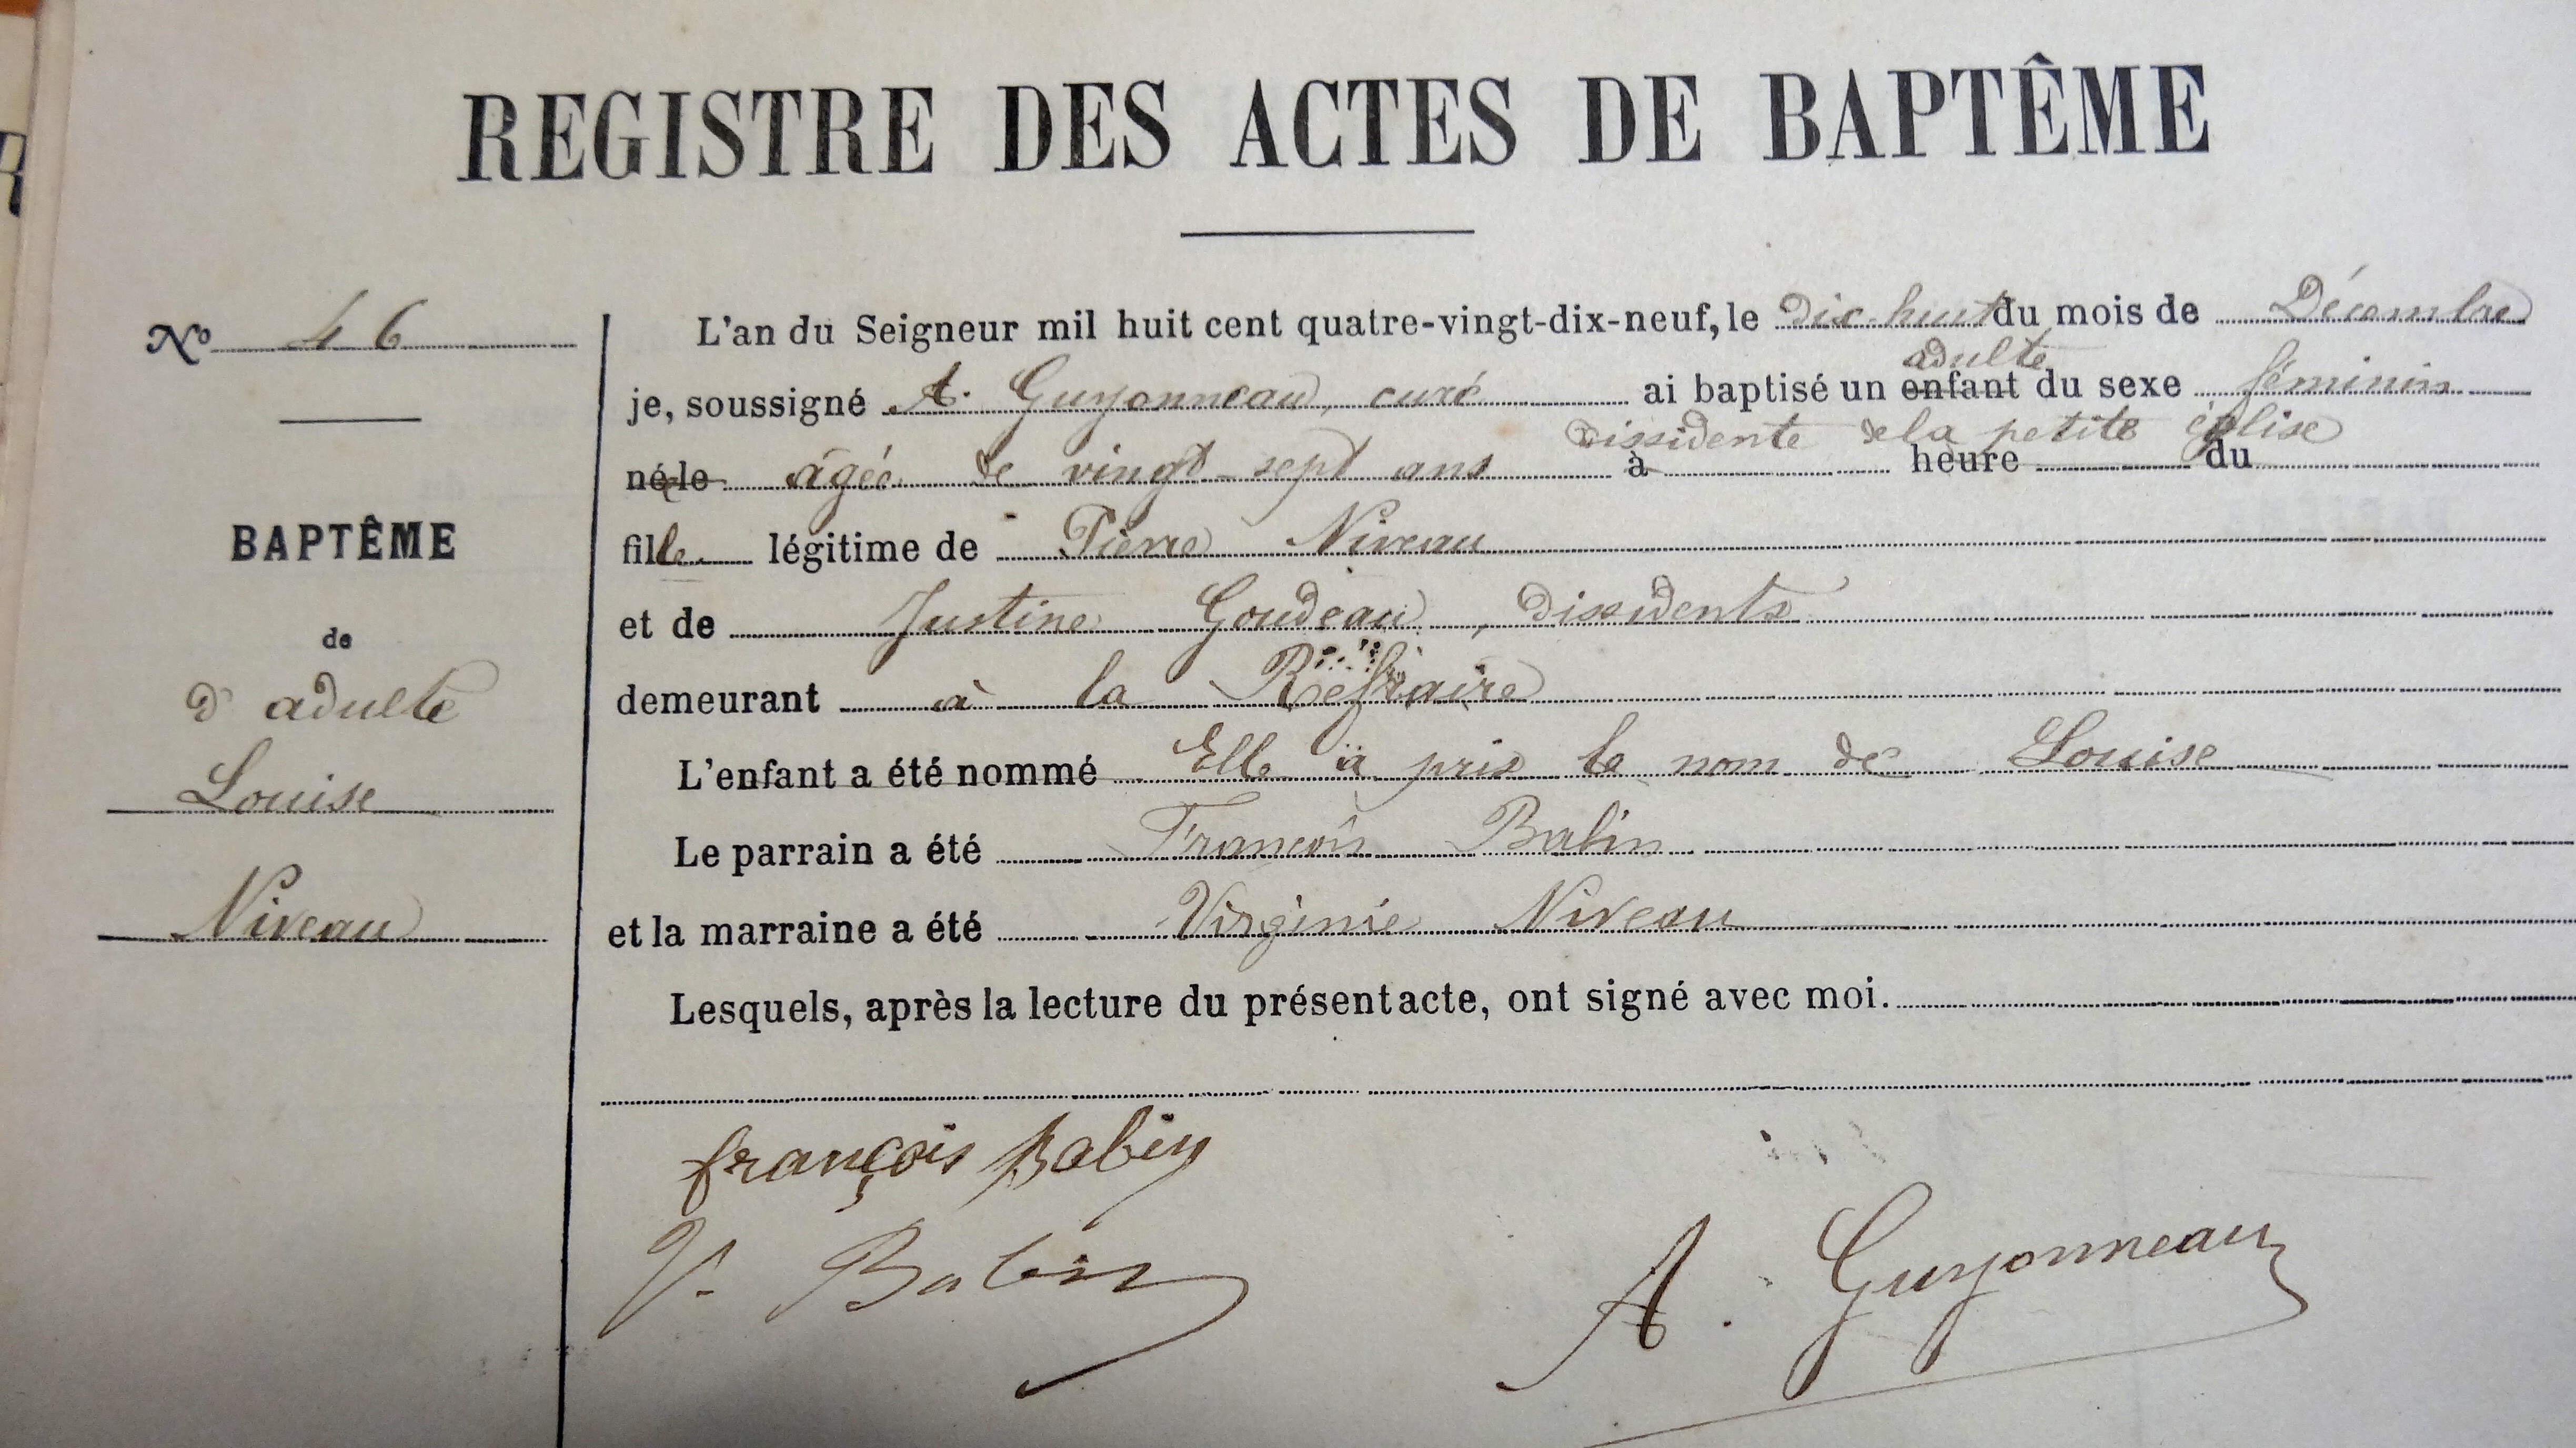 REGISTRE DES ACTES DE BAPTÊME
No 46
BAPTÊME
de
d'adulte
Louise
Niveau
L'an du Seigneur mil huit cent quatre-vingt-dix-neuf, le dix-huit du mois de Décembre
adulte
je, soussigné A. Guyonneau, curé ai baptisé un enfant du sexe féminin
dissidente de la petite église
né le âgée de vingt-sept ans à heure du
fille légitime de Pierre Niveau
et de Justine Goudeau, dissidents
demeurant à la
L'enfant a été nommé Elle a pris le nom de Louise
Le parrain a été François Babin
et la marraine a été Virginie Niveau
Lesquels, après la lecture du présent acte, ont signé avec moi.
françois Babin
V. Babin
A. Guyonneau